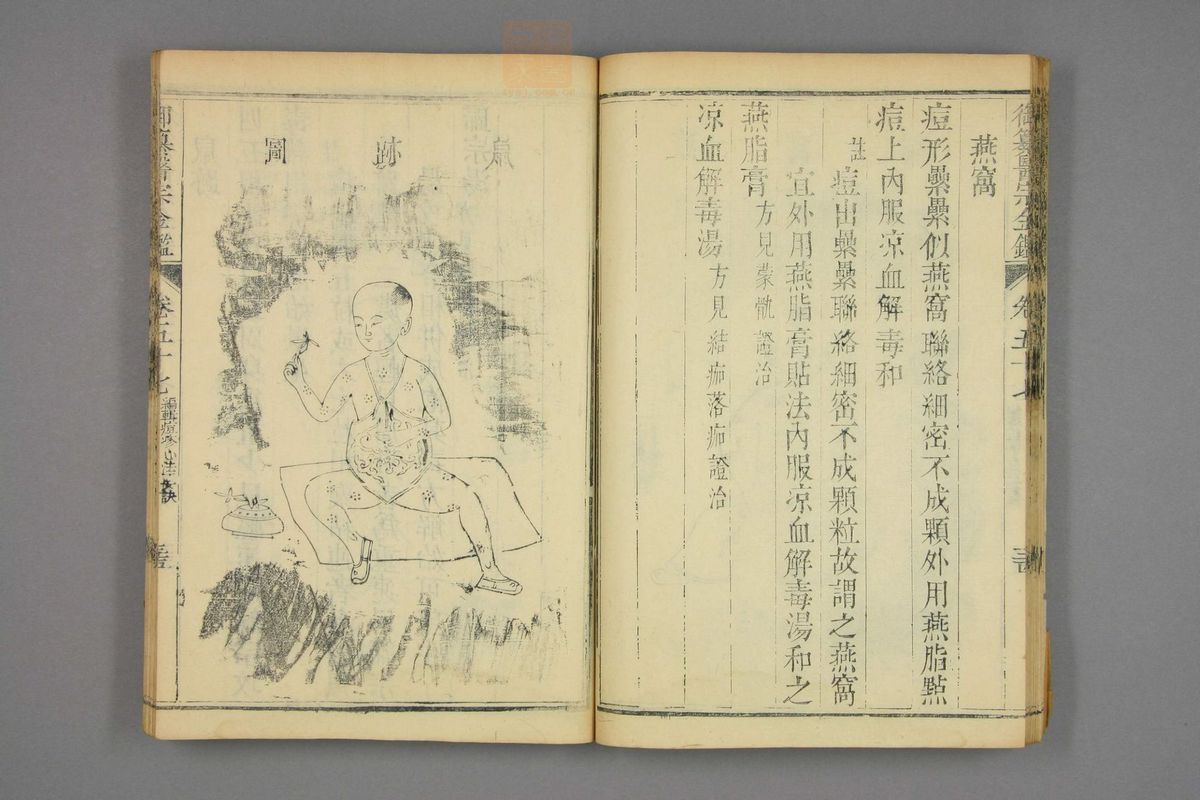 燕窩
痘形纍纍似燕窩聯絡細密不成顆外用燕脂點
痘上內服凉血解毒和
註痘出纍纍聯絡細密不成顆粒故謂之燕窩
宜外用燕脂膏貼法內服凉血解毒湯和之
燕脂膏方見蒙骩證治
凉血解毒湯方見結痂落痂證治
御纂醫宗金鑑 卷五十七
跡
圖
御纂醫宗金鑑 卷五十七 編輯痘疹心法要訣